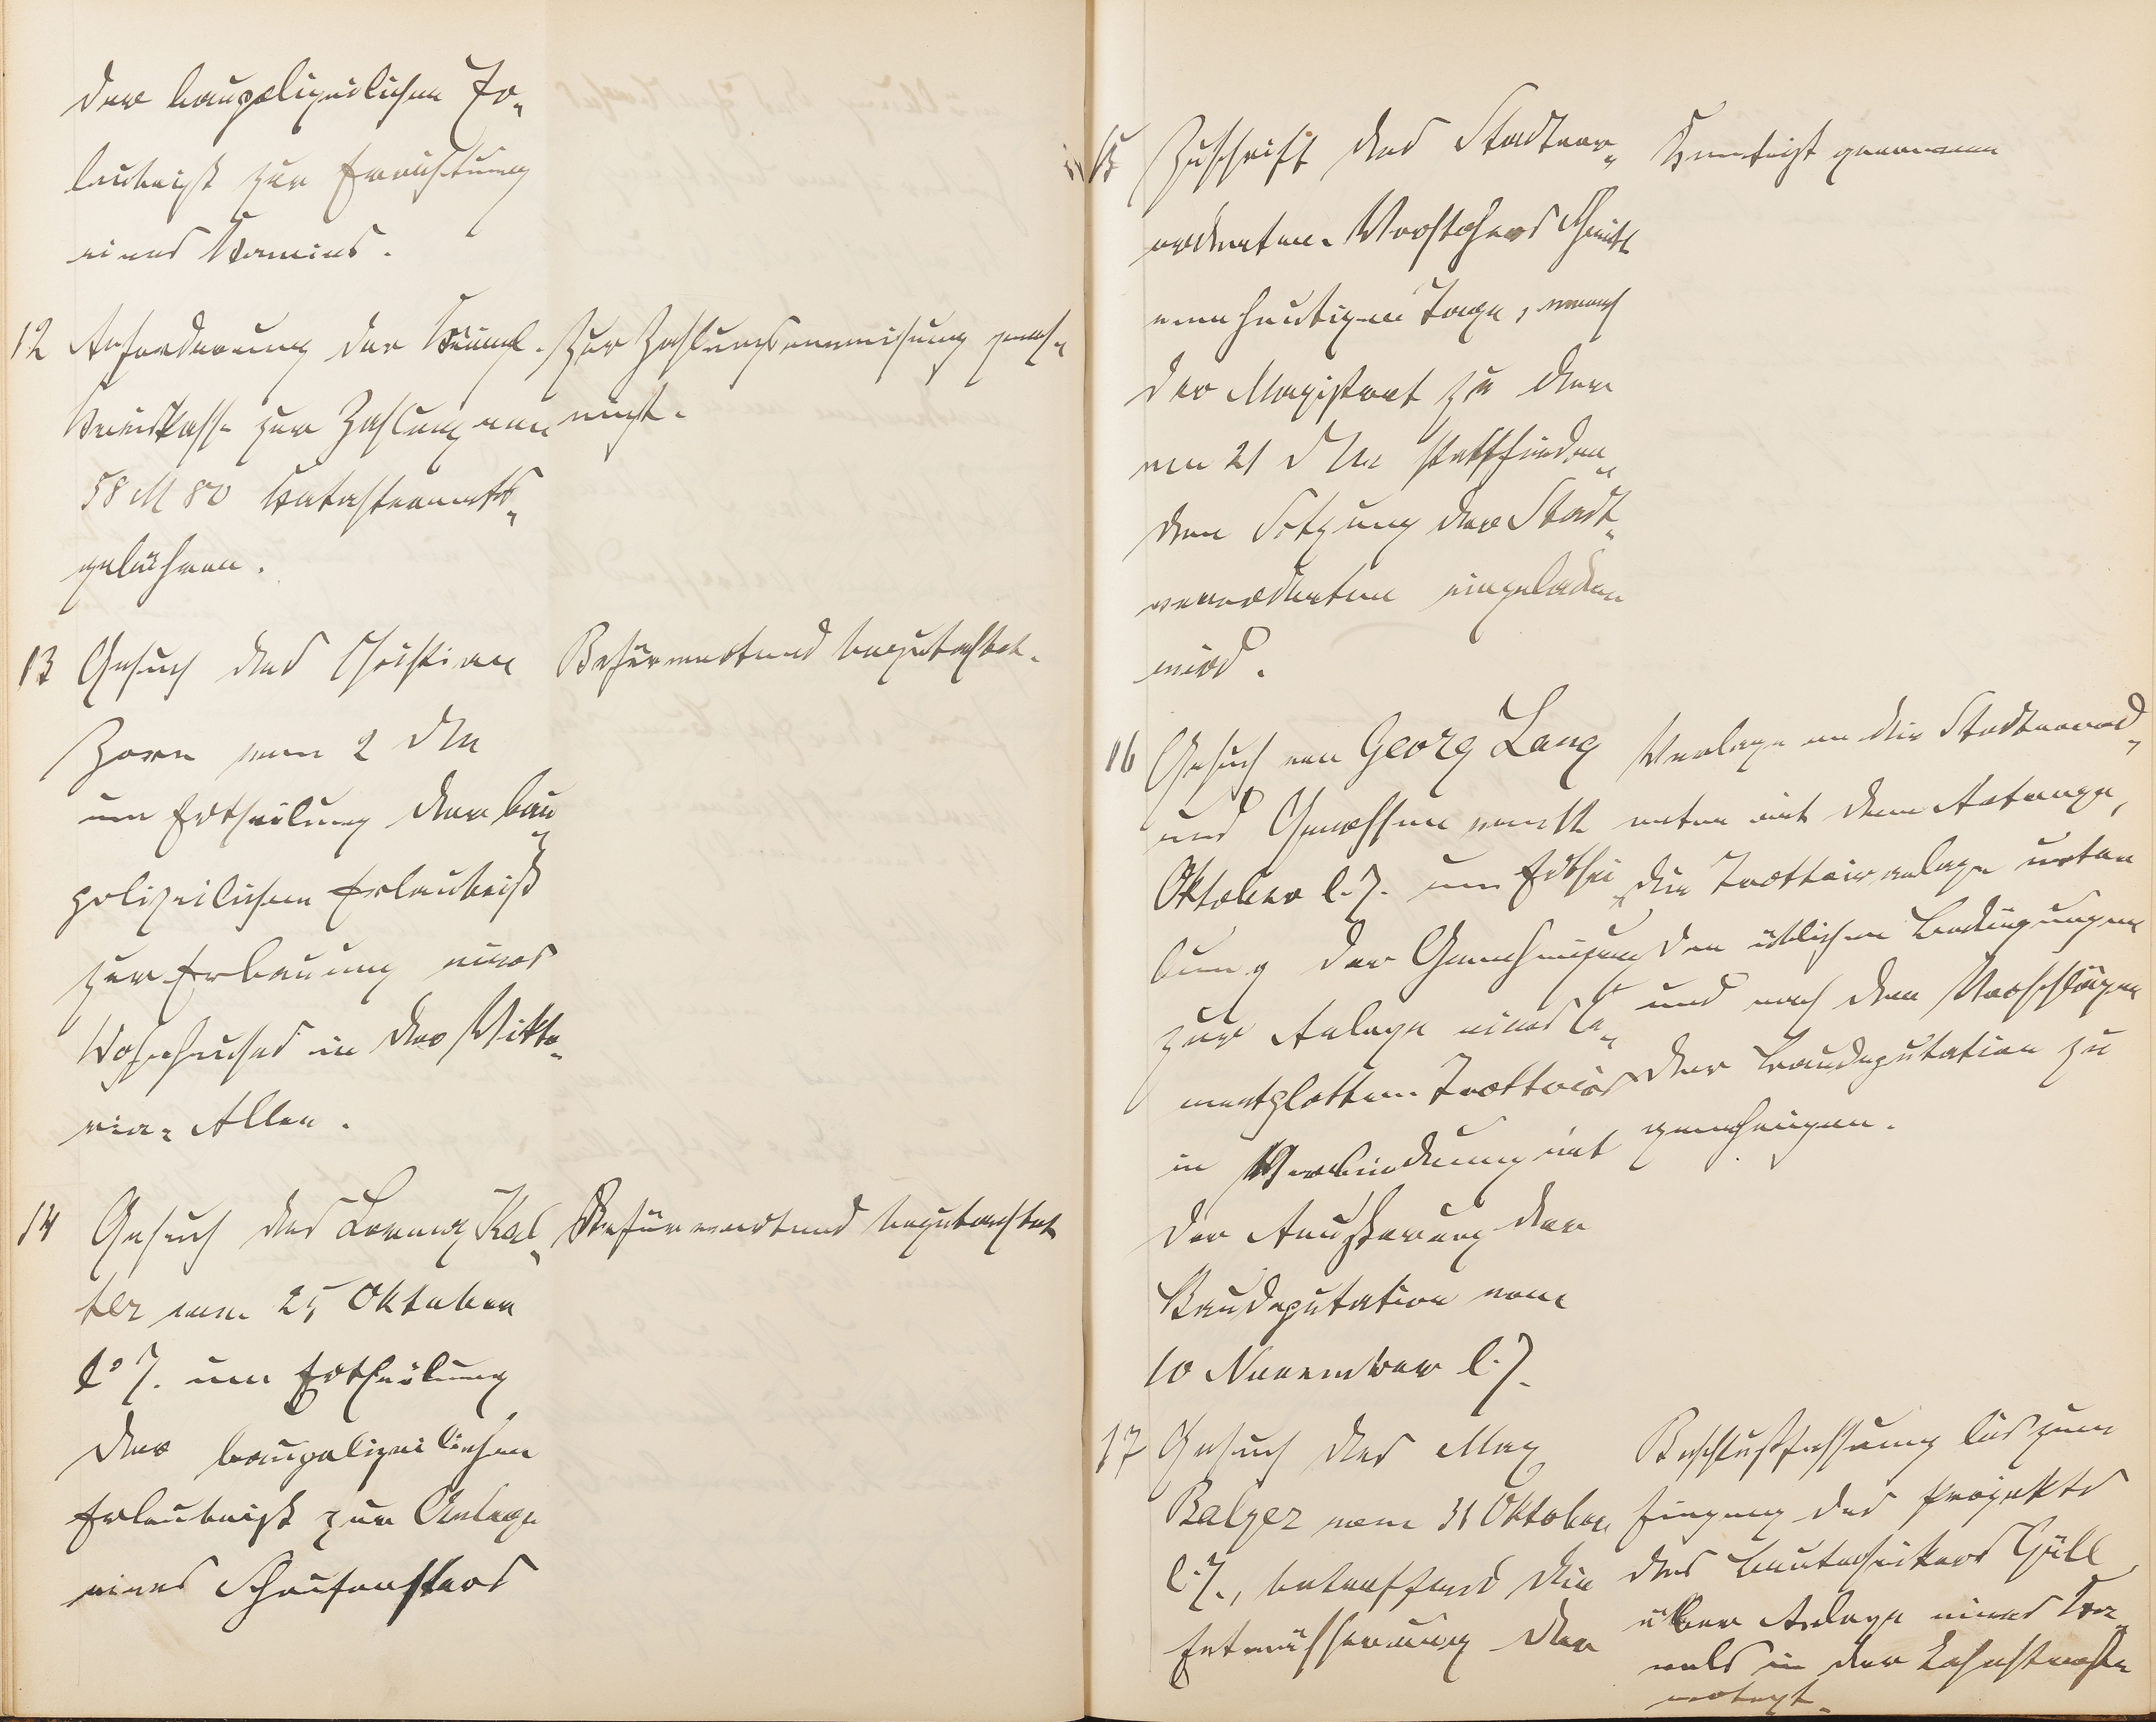 der baupolizeilichen Er-
laubniß zur Errichtung
eines Kamins.
12 Anforderung der Königl.
Kreiskasse zur Zahlung von
58 M 80 Katasteramts-
gebühren.
Zur Zahlungsanweisung geneh-
migt.
13 Gesuch des Christian
Zorn vom 2 d Mts
um Ertheilung der bau-
polizeilichen Erlaubniß
zur Erbauung eines
Wohnhauses in der Vikto-
ria-Allee.
Befürwortend begutachtet.
14 Gesuch des Lorenz Kal-
ter vom 25 Oktober
l. J. um Ertheilung
der baupolizeilichen
Erlaubniß zur Anlage
eines Schaufensters
Befürwortend begutachtet
15 Zuschrift des Stadtver-
ordneten-Vorstehers
vom heutigen Tage, wonach
der Magistrat zu der
am 21 d Mts stattfinden-
den Sitzung der Stadt-
verordneten eingeladen
wird.
Kenntniß genommen
16 Gesuch von Georg Lang
und Genossen vom
Oktober l. J. um Erthei-
lung der Genehmigung
zur Anlage eines Ce-
mentplatten-Trottoirs
in Verbindung mit
der Aeußerung der
Baudeputation vom
10 November l. J.
Vorlage an die Stadtverord-
neten mit dem Antrage,
die Trottoiranlage unter
den üblichen Bedingungen
und nach den Vorschlägen
der Baudeputation zu
genehmigen.
17 Gesuch des Max
Balzer vom 31 Oktober
l. J., betreffend die
Entwässerung der
Beschlußfassung bis zum
Eingang des Projekts
des Bautechnikers Güll
über Anlage eines Ka-
nals in der Lahnstraße
vertagt.